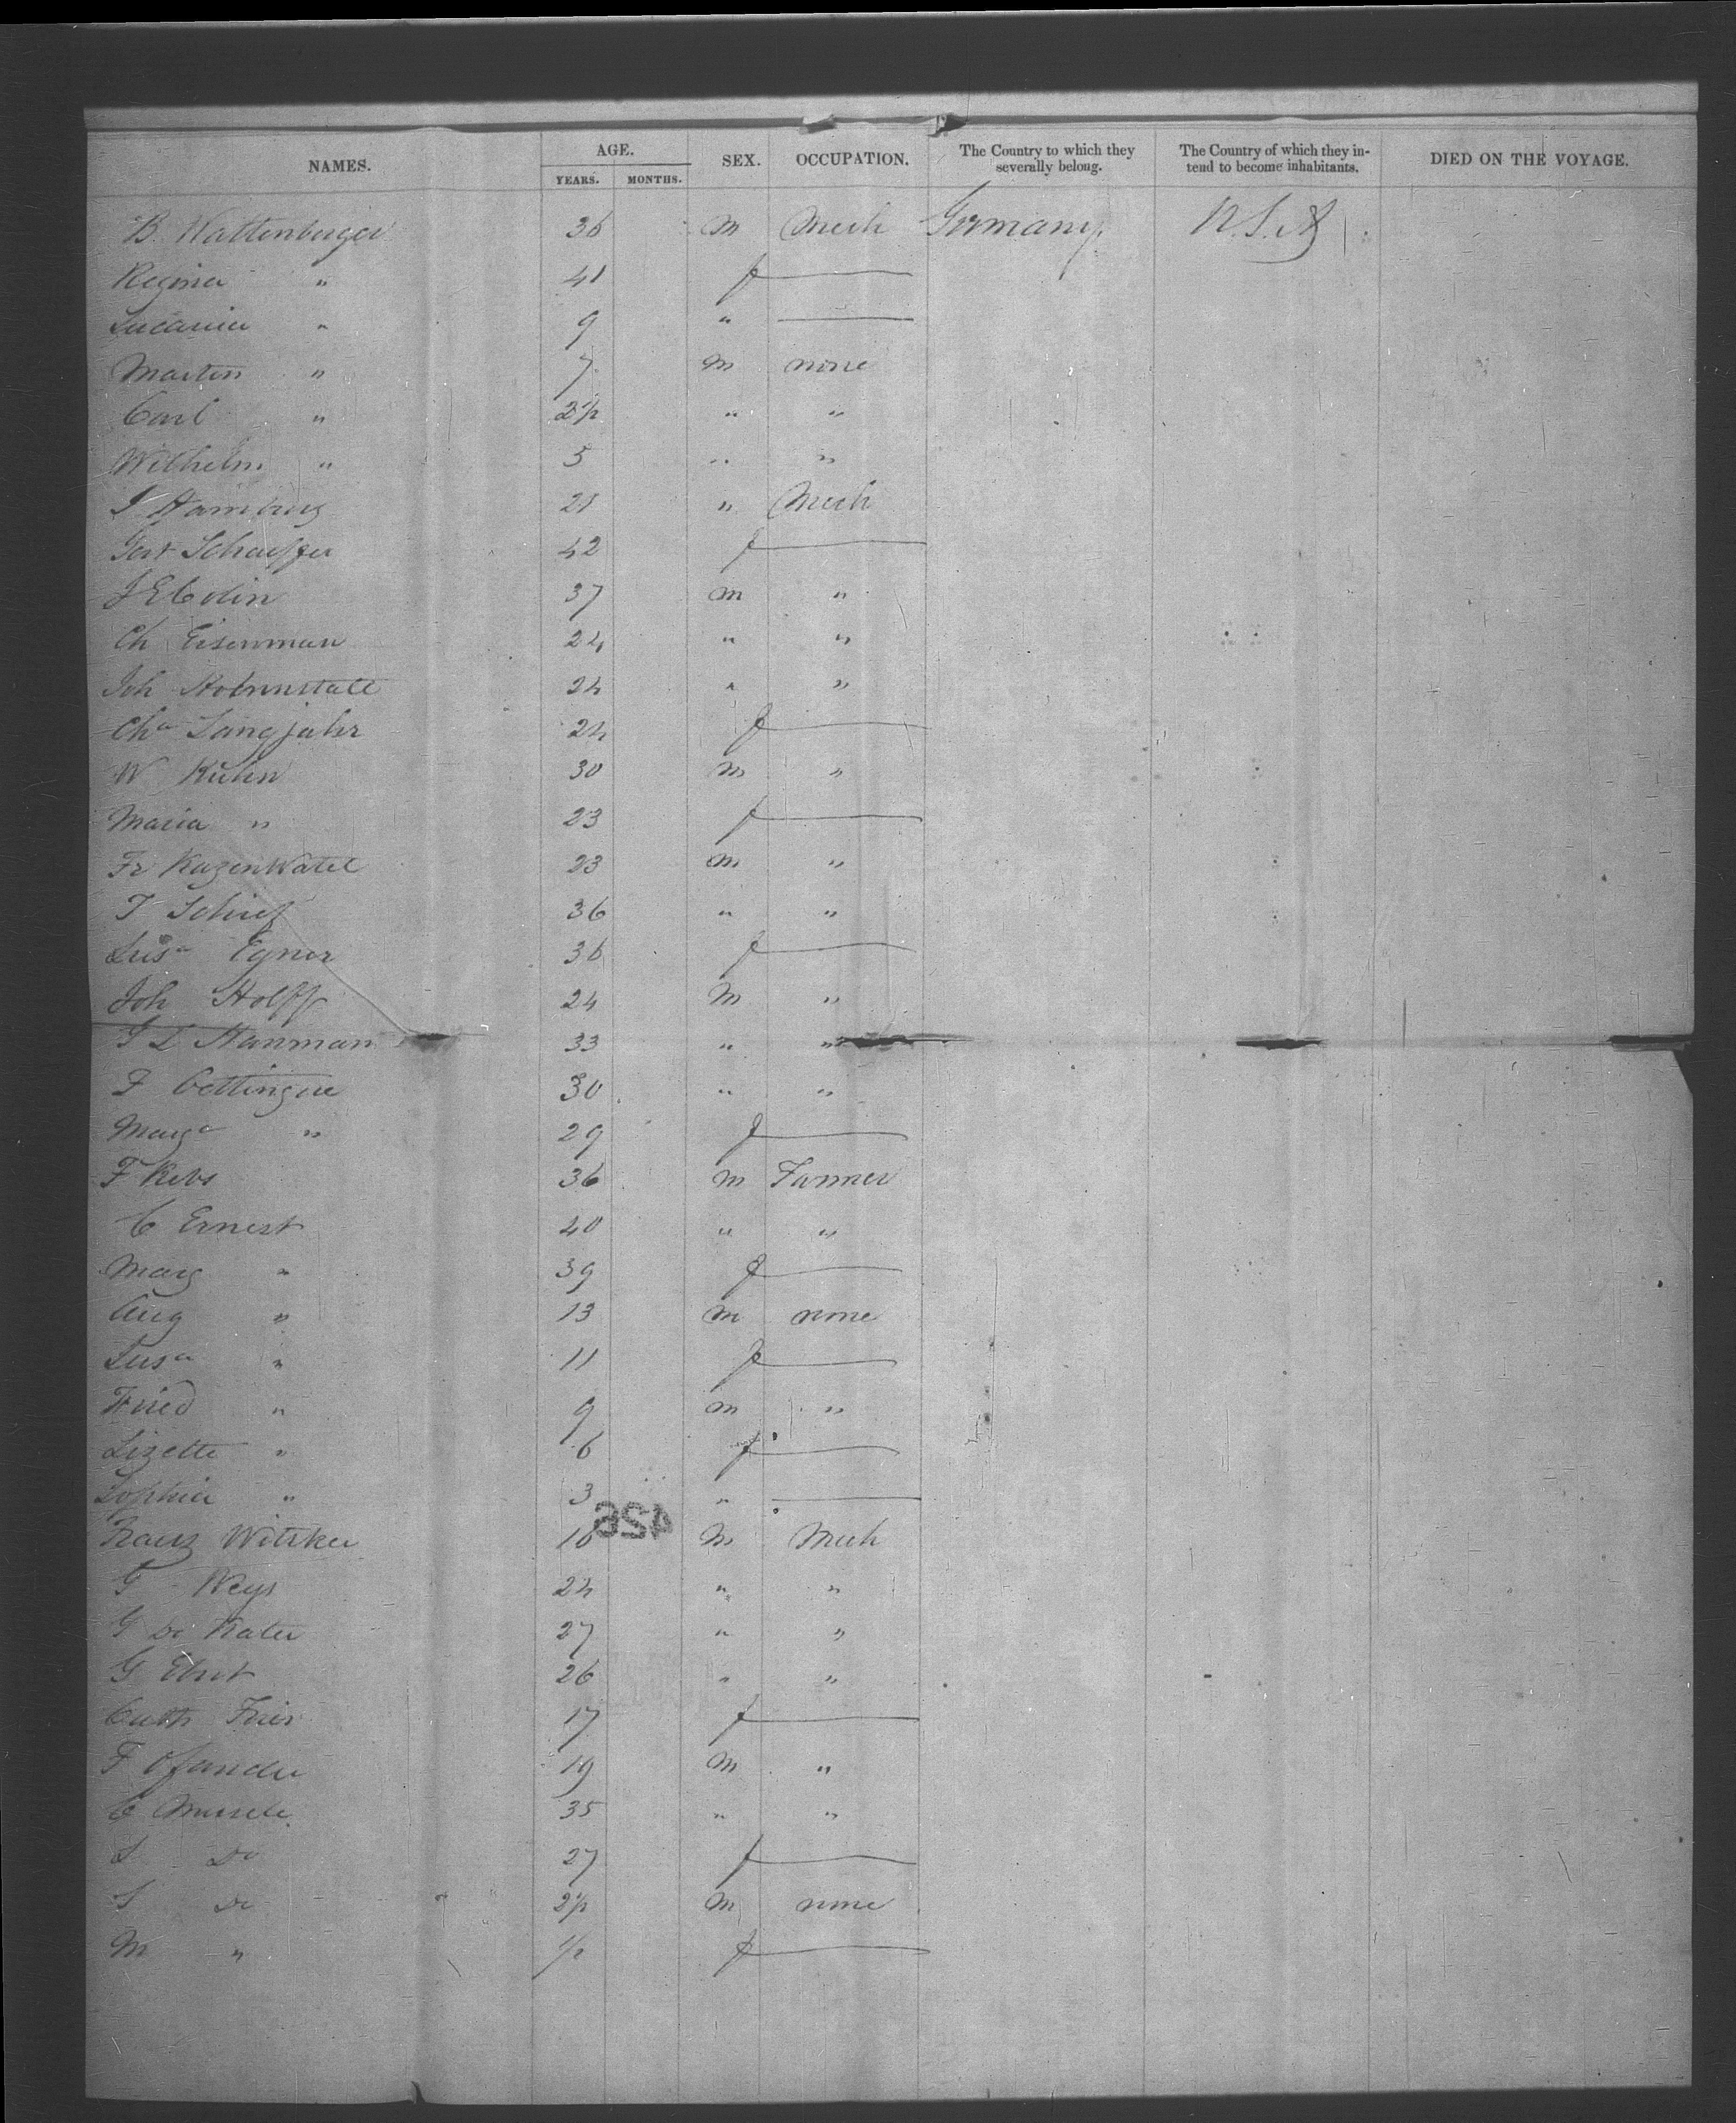 NAMES. AGE. SEX. OCCUPATION. The Country to which they severally belong. The Country of which they intend to become inhabitants. DIED ON THE VOYAGE.
YEARS. MONTHS.
B. Wattenberger 36 m Mech Germany U.S.A
Regina " 41 f
" 9 "
Martin " 7 m none
Carl " 2½ " "
Wilhelm " 5 " "
J Hamburg 21 " Mech
Gert Schaeffer 42 f
J E Colin 37 m "
Ch Eisenman 24 " "
Joh 24 " "
Cha Langjahr 24 f
W Kuhn 30 m "
Maria " 23 f
Fr Kazenwatel 23 m "
36 " "
Egner 36 f
Joh Holff 24 m "
G L Hanman 33 " "
F Oettinger 30 " "
Marga " 29 f
F Kebs 36 m Farmer
C Ernest 40 " "
Marg " 39 f
Aug " 13 m none
Lusa " 11 f
Fried " 9 m "
Lizette " 6 f
Sophia " 3 "
Franz Witsker 16 m Mech
426
24 " "
G De Kater 27 " "
G 26 " "
Cath 17 f
F 19 m "
C 35 " "
Do 27 f
Do 2½ m none
M " ½ f